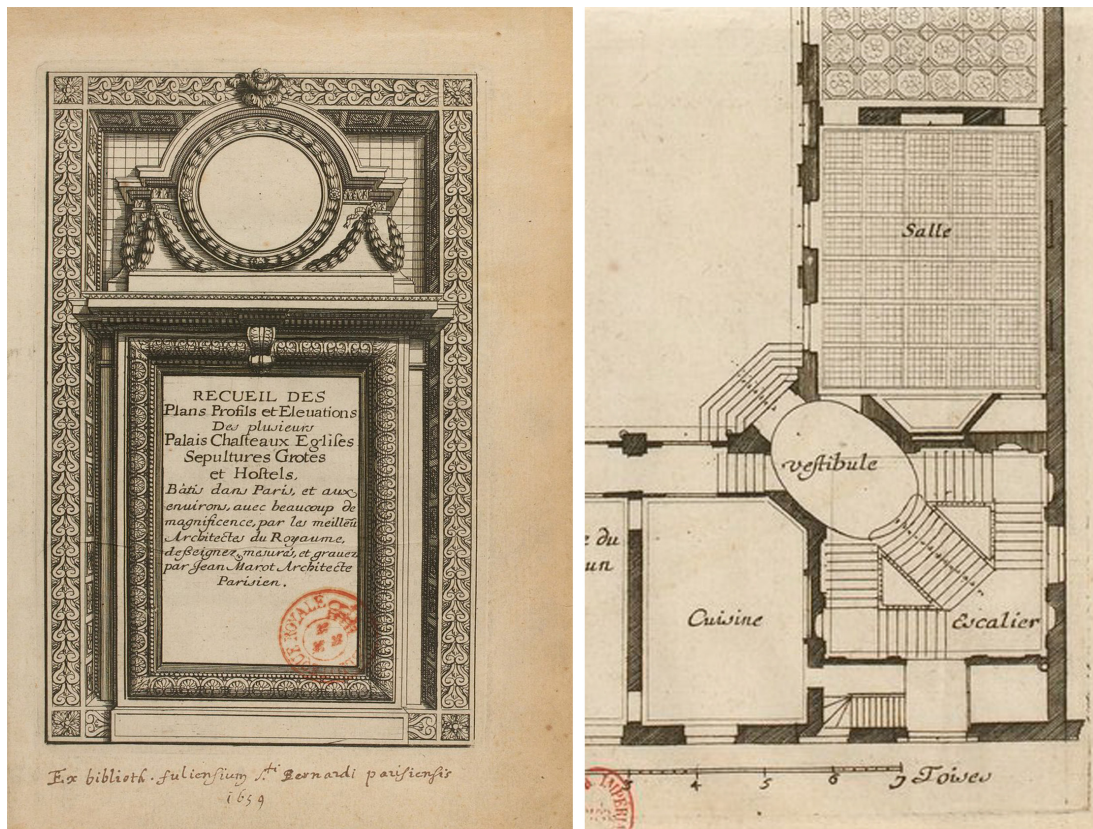 RECUEIL DES
Plans Profils et Eleuations
Des plusieurs
Palais Chasteaux Eglises
Sepultures Grotes
et Hostels,
Bâtis dans Paris, et aux
enuirons, auec beaucoup de
magnificence, par les meilleu
Architectes du Royaume,
desseignez, mesurés, et grauez
par Jean Marot Architecte
Parisien.
Ex biblioth. fuliensium S.ti Bernardi parisiensis
1659
Salle
Vestibule
e du
un
Cuisine
Escalier
3 4 5 6 7 Toises